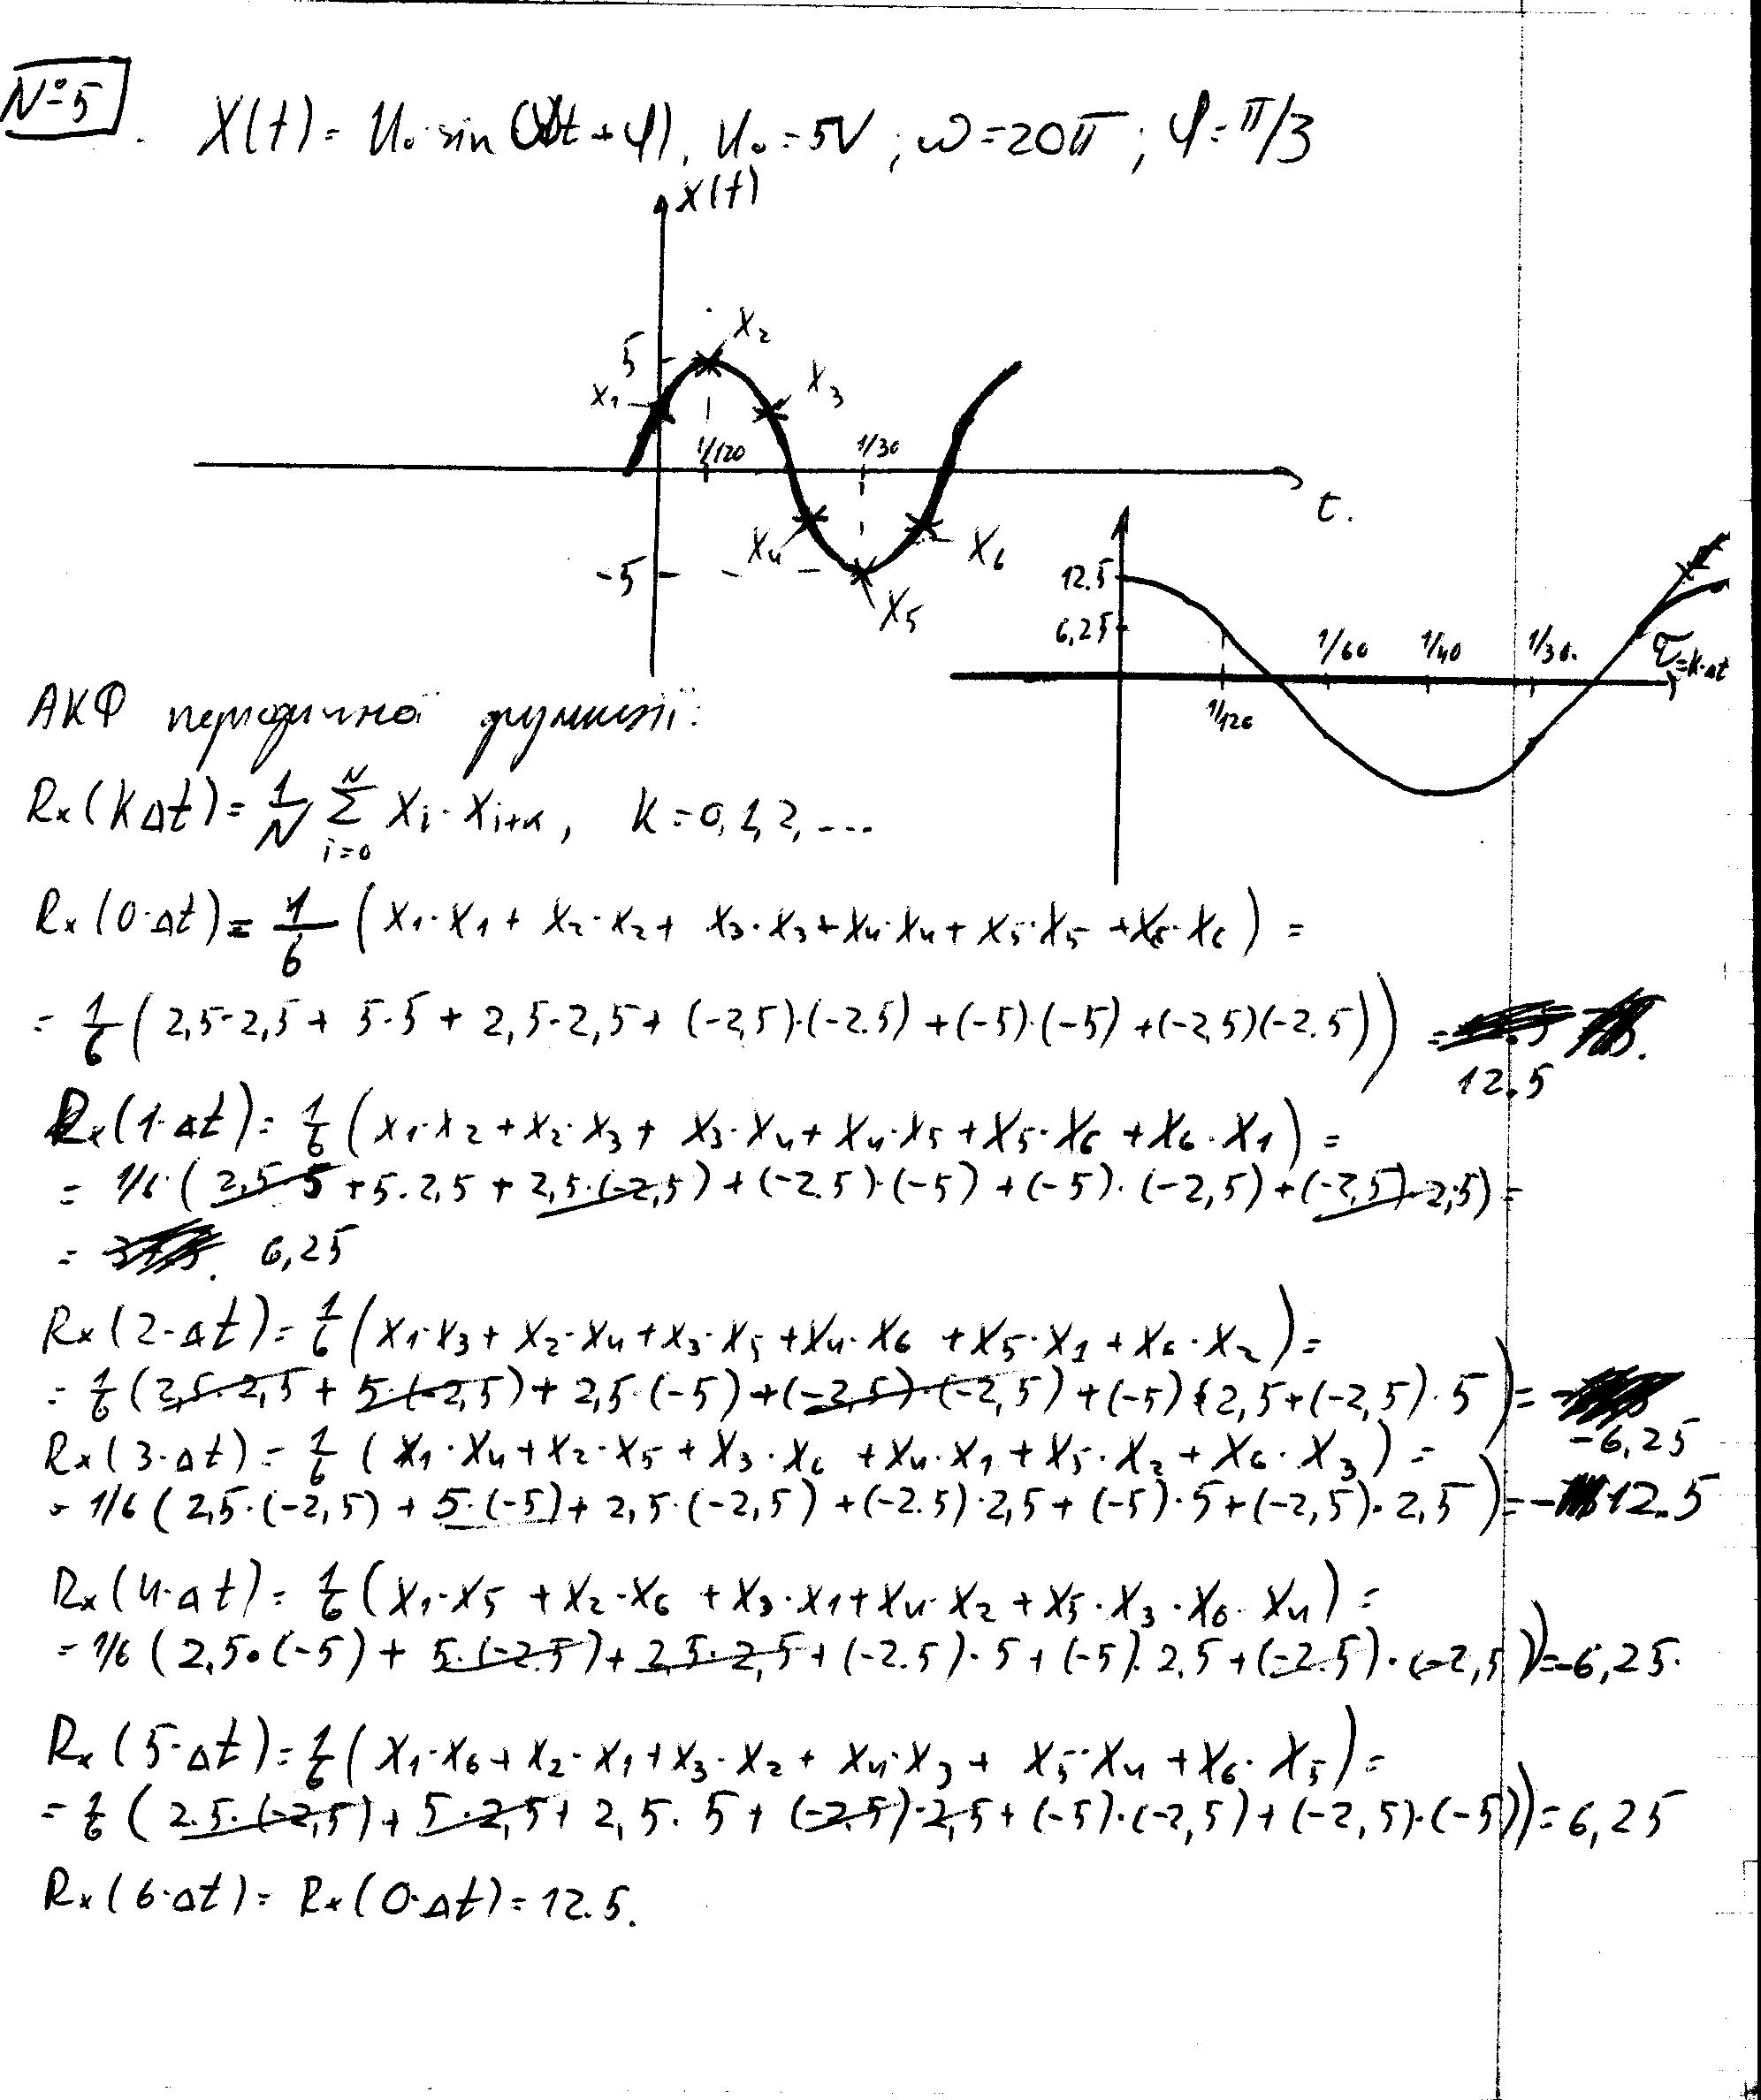 №5. X(t) = U₀·sin(ωt + φ), U₀ = 5V; ω = 20π; φ = π/3
x(t)
5
X₂
X₁
X₃
1/120
1/30
t.
-5
X₄
X₆
X₅
12.5
6,25
1/60
1/40
1/30.
τ=k·Δt
1/120
АКФ періодичної функції:
Rx(kΔt) = 1/N Σ (i=0, N) Xi·Xi+k, k=0,1,2,...
Rx(0·Δt) = 1/6 (X₁·X₁ + X₂·X₂ + X₃·X₃ + X₄·X₄ + X₅·X₅ + X₆·X₆) =
= 1/6 (2,5·2,5 + 5·5 + 2,5·2,5 + (-2,5)·(-2.5) + (-5)·(-5) + (-2,5)(-2.5)) =
12.5
Rx(1·Δt) = 1/6 (X₁·X₂ + X₂·X₃ + X₃·X₄ + X₄·X₅ + X₅·X₆ + X₆·X₁) =
= 1/6·(2,5·5 + 5·2,5 + 2,5·(-2,5) + (-2.5)·(-5) + (-5)·(-2,5) + (-2,5)·2,5) =
= 6,25
Rx(2·Δt) = 1/6 (X₁·X₃ + X₂·X₄ + X₃·X₅ + X₄·X₆ + X₅·X₁ + X₆·X₂) =
= 1/6 (2,5·2,5 + 5·(-2,5) + 2,5·(-5) + (-2,5)·(-2,5) + (-5)·2,5 + (-2,5)·5) = -6,25
Rx(3·Δt) = 1/6 (X₁·X₄ + X₂·X₅ + X₃·X₆ + X₄·X₁ + X₅·X₂ + X₆·X₃) =
= 1/6 (2,5·(-2,5) + 5·(-5) + 2,5·(-2,5) + (-2.5)·2,5 + (-5)·5 + (-2,5)·2,5) = -12.5
Rx(4·Δt) = 1/6 (X₁·X₅ + X₂·X₆ + X₃·X₁ + X₄·X₂ + X₅·X₃·X₆·X₄) =
= 1/6 (2,5·(-5) + 5·(-2.5) + 2,5·2,5 + (-2.5)·5 + (-5)·2,5 + (-2.5)·(-2,5)) = -6,25.
Rx(5·Δt) = 1/6 (X₁·X₆ + X₂·X₁ + X₃·X₂ + X₄·X₃ + X₅·X₄ + X₆·X₅) =
= 1/6 (2.5·(-2,5) + 5·2,5 + 2,5·5 + (-2,5)·2,5 + (-5)·(-2,5) + (-2,5)·(-5)) = 6,25
Rx(6·Δt) = Rx(0·Δt) = 12.5.